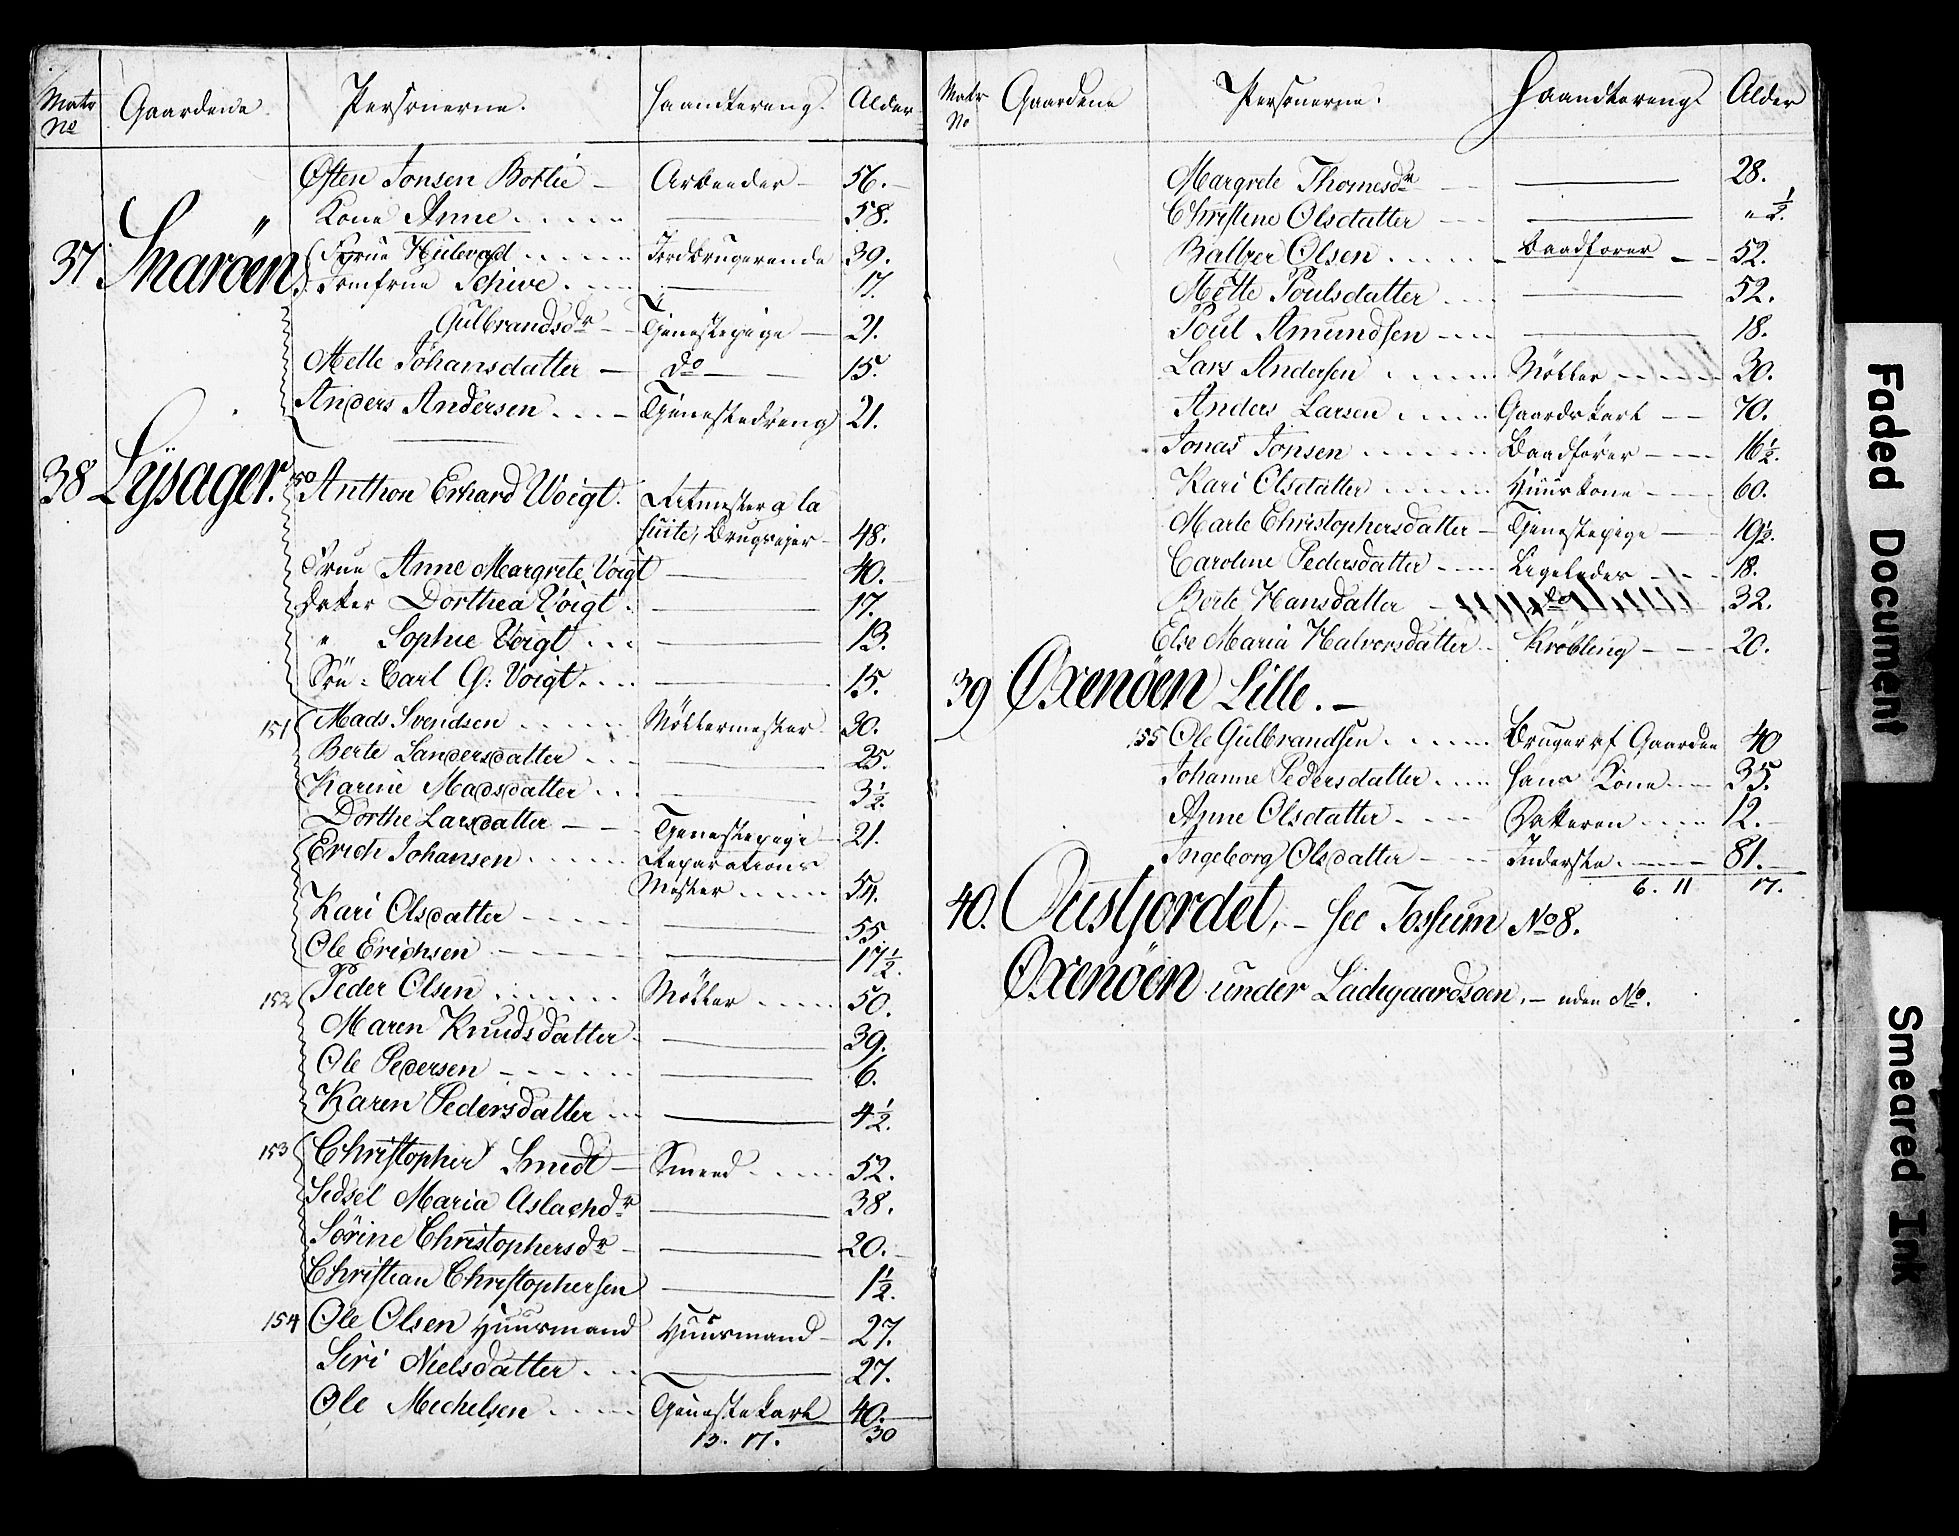 Matr No Gaardene. Personerne. Haandtering. Alder
Østen Jonsen — Arbeider — 56. —
Kone Anne 58.
37 Snarøen Frue Jordbrugerende 39.
Jomfrue Schive 17.
Gulbrandsdr Tjenestepige — 21.
Mette Johansdatter — do — 15.
Anders Andersen Tjenestedreng 21.
38 Lysager. 150 Anthon Erhard Voigt. Ritmester a la
suite, Brugseier — 48.
Frue Anne Margrete Voigt 40.
Datter Dorthea Voigt 17.
" Sophie Voigt 13.
Sön - Carl G: Voigt 15.
151 Mads Svendsen Möllermester 30.
Berte Sandersdatter 25.
Karine Madsdatter 3½.
Dorthe Larsdatter Tjenestepige 21.
Erich Johansen Reparations
Mester 54.
Kari Olsdatter 55.
Ole Erichsen 17½.
152 Peder Olsen Möller 50.
Maren Knudsdatter 39.
Ole Pedersen 6.
Karen Pedersdatter 4½.
153 Christopher Smidt — Smed 52.
Sidsel Maria Aslachdr 38.
Sörine Christophersdr 20. —
Christian Christophersen 1½.
154 Ole Olsen Huusmand Huusmand — 27.
Siri Nielsdatter 27.
Ole Michelsen Tjenestekarl 40.
13. 17. 30
Matr No Gaardene Personerne. Haandtering Alder
Margrete Thomesdr 28.
Christine Olsdatter " ½.
Baltzer Olsen Baadfører 52.
Mette Poulsdatter 52.
Poul Amundsen 18.
Lars Andersen Möller 30.
Anders Larsen Gaardskarl 70.
Jonas Jonsen Baadfører 16½.
Kari Olsdatter Huuskone 60.
Marte Christophersdatter — Tjenestepige 19½.
Caroline Pedersdatter Ligeledes 18.
Berte Hansdatter do 32.
Else Maria Halvorsdatter Krøbling 20.
39 Øxenöen Lille. —
155 Ole Gulbrandsen Bruger af Gaarden 40
Johanne Pedersdatter hans Kone 35.
Anne Olsdatter Datteren 12.
Ingeborg Olsdatter Inderste 81.
6. 11 17.
40. Ousfjordet, — see Jossum No 8.
Øxenöen under Ladegaardsöen, — uden No.
Faded Document
Smeared Ink